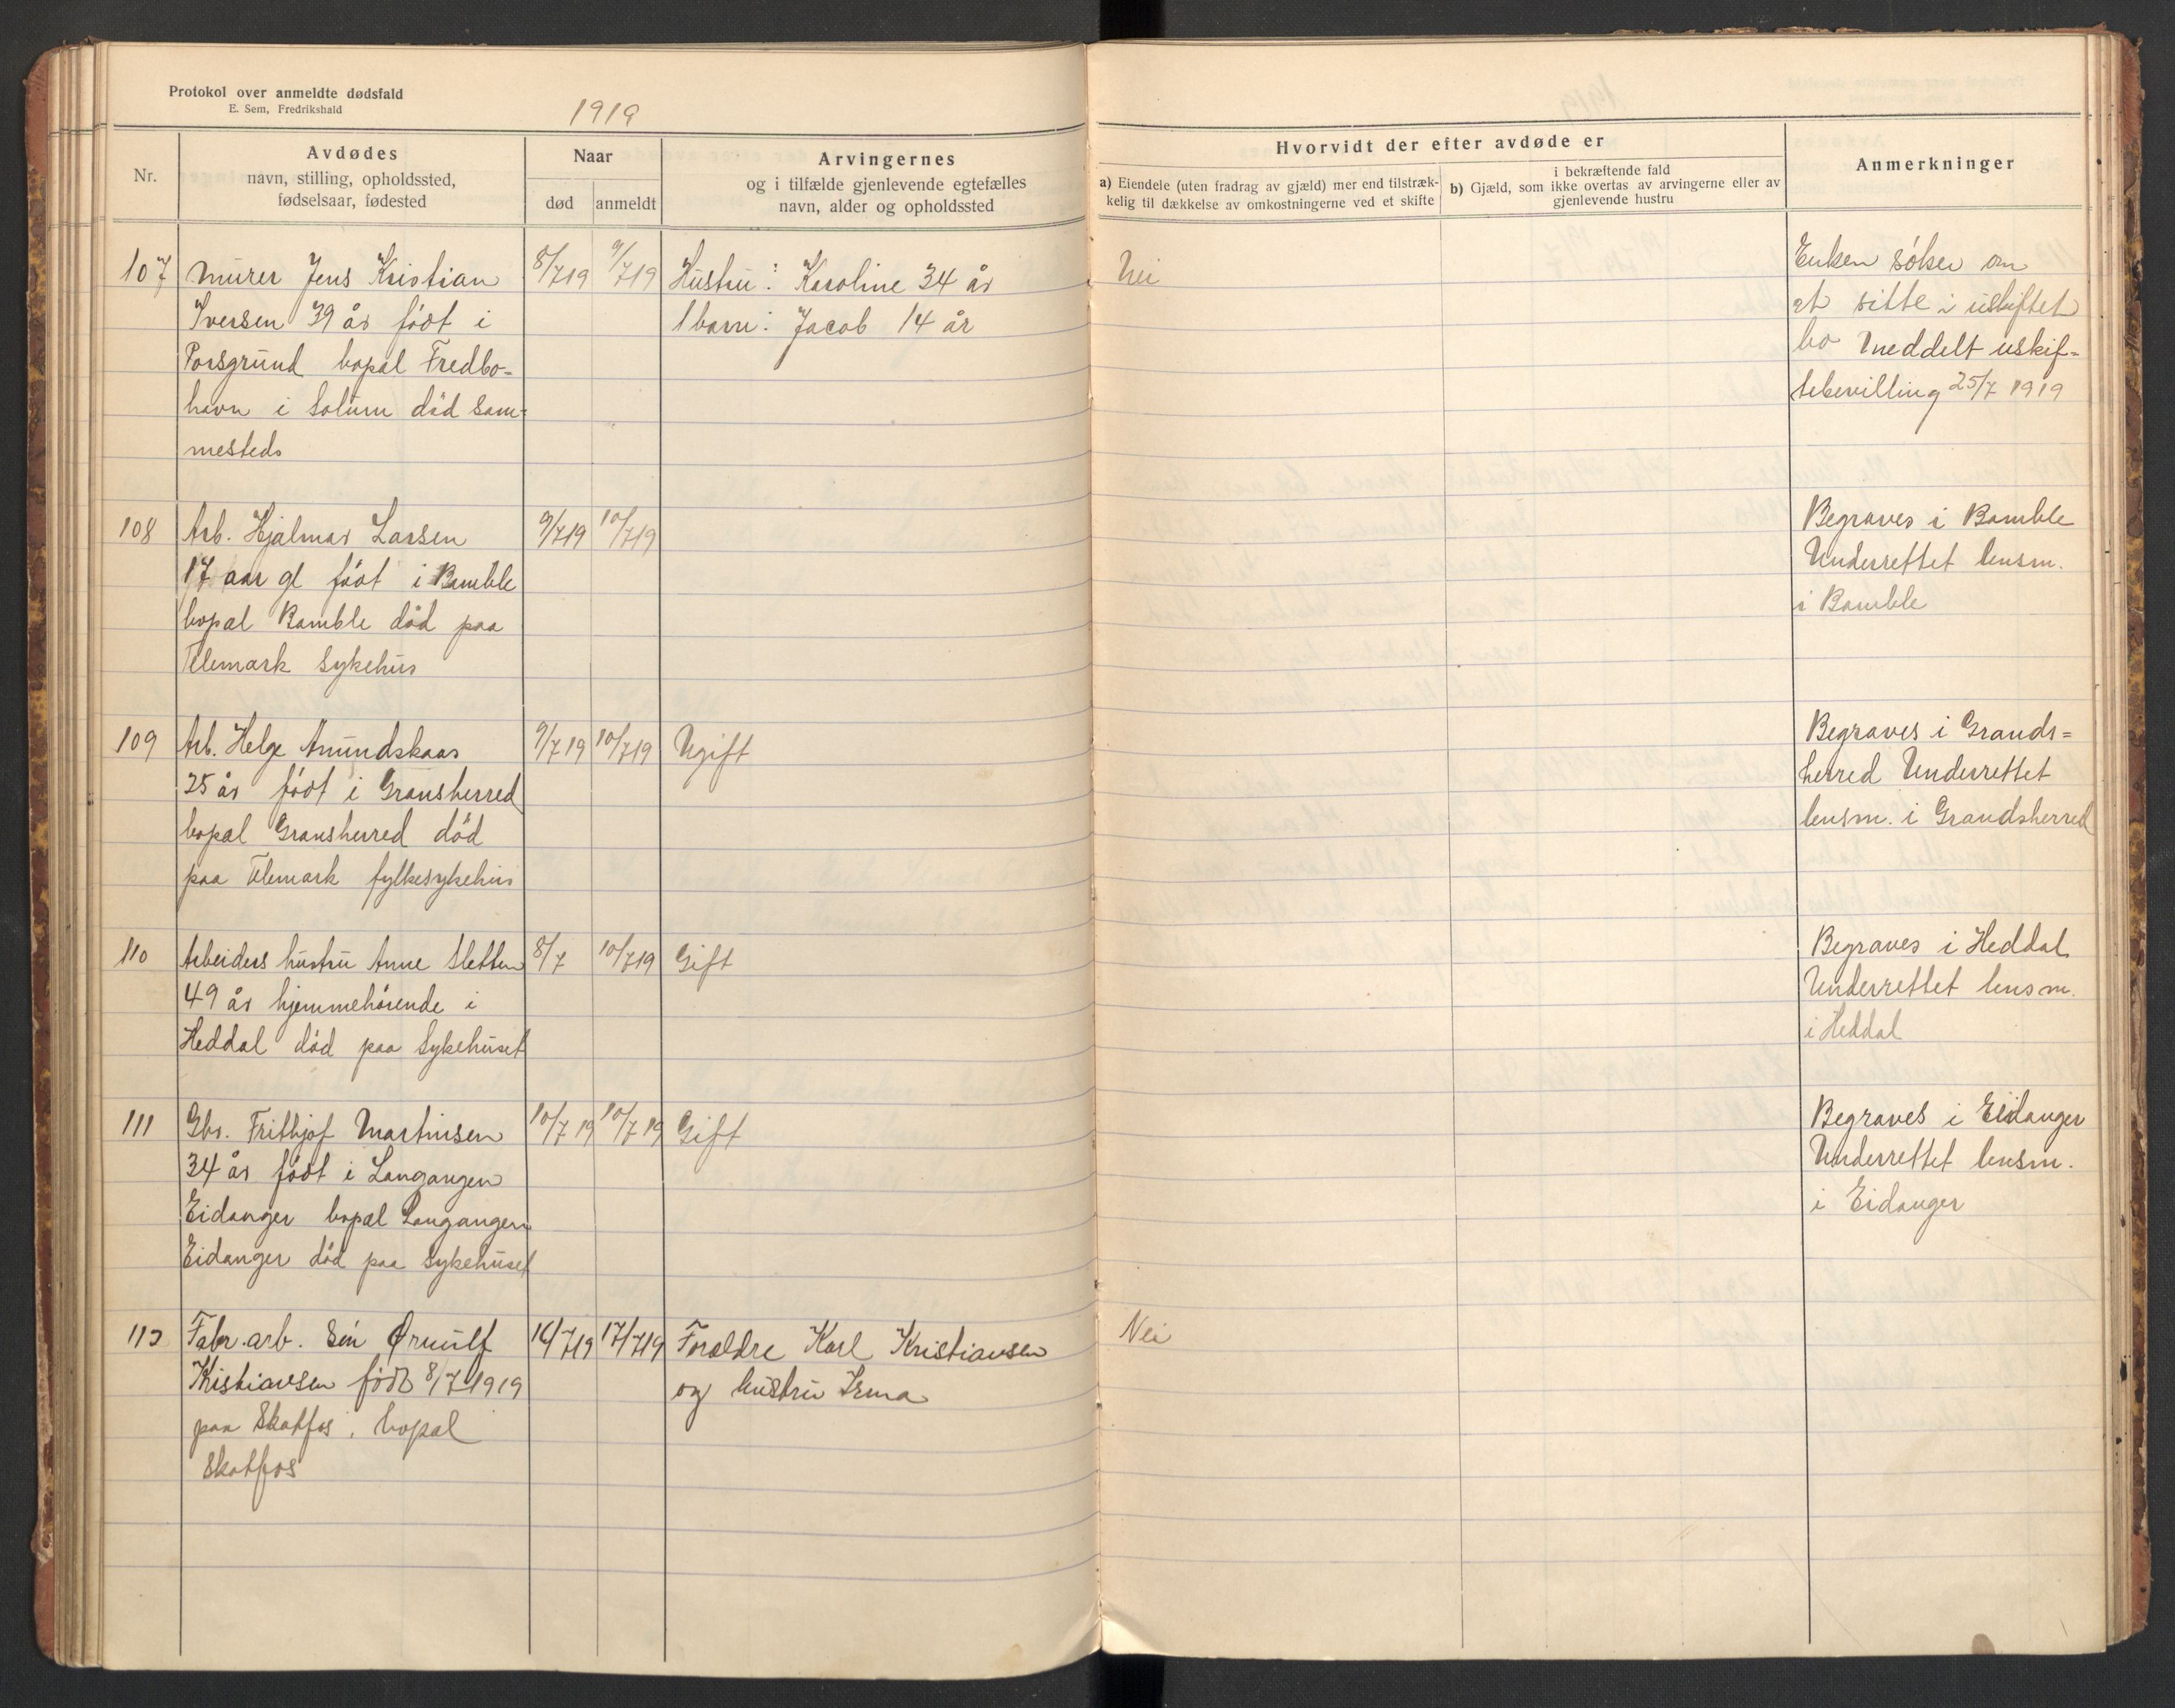 Protokol over anmeldte dødsfald
E. Sem, Fredrikshald
1919
Nr.
Avdødes
navn, stilling, opholdssted,
fødselsaar, fødested
Naar
død
anmeldt
Arvingernes
og i tilfælde gjenlevende egtefælles
navn, alder og opholdssted
Hvorvidt der efter avdøde er
a) Eiendele (uten fradrag av gjæld) mer end tilstræk-
kelig til dækkelse av omkostningerne ved et skifte
i bekræftende fald
b) Gjæld, som ikke overtas av arvingerne eller av
gjenlevende hustru
Anmerkninger
107 Murer Jens Kristian 8/7 19 9/7 19 Hustru: Karoline 34 år Nei
Iversen 39 år født i 1 barn: Jacob 14 år
Porsgrund bopal Fredbo-
havn i Solum död sam-
mesteds
Enken söker om
at sitte i uskiftet
bo Meddelt uskif-
tebevilling 25/7 1919
108 Arb. Hjalmar Larsen 9/7 19 10/7 19
17 aar gl födt i Bamble
bopal Bamble död paa
Telemark Sykehus
Begraves i Bamble
Underrettet lensm.
i Bamble
109 Arb. Helge Amundskaas 9/7 19 10/7 19 Ugift
25 år födt i Gransherred
bopal Gransherred död
paa Telemark fylkesykehus
Begraves i Grands=
herred Underrettet
lensm. i Grandsherred
110 Arbeiders hustru Anne Sletten 8/7 10/7 19 Gift
49 år hjemmehörende i
Heddal död paa Sykehuset
Begraves i Heddal
Underrettet lensm.
i Heddal
111 Gbr. Frithjof Martinsen 10/7 19 10/7 19 Gift
34 år födt i Langangen
Eidanger bopal Langangen
Eidanger död paa Sykehuset
Begraves i Eidanger
Underrettet lensm.
i Eidanger
Fabr. arb. Sön Ørnulf 14/7 19 17/7 19 Foraldre Karl Kristiansen Nei
Kristiansen födt 8/7 1919 og hustru Irma
paa Skotfos, bopal
Skotfos